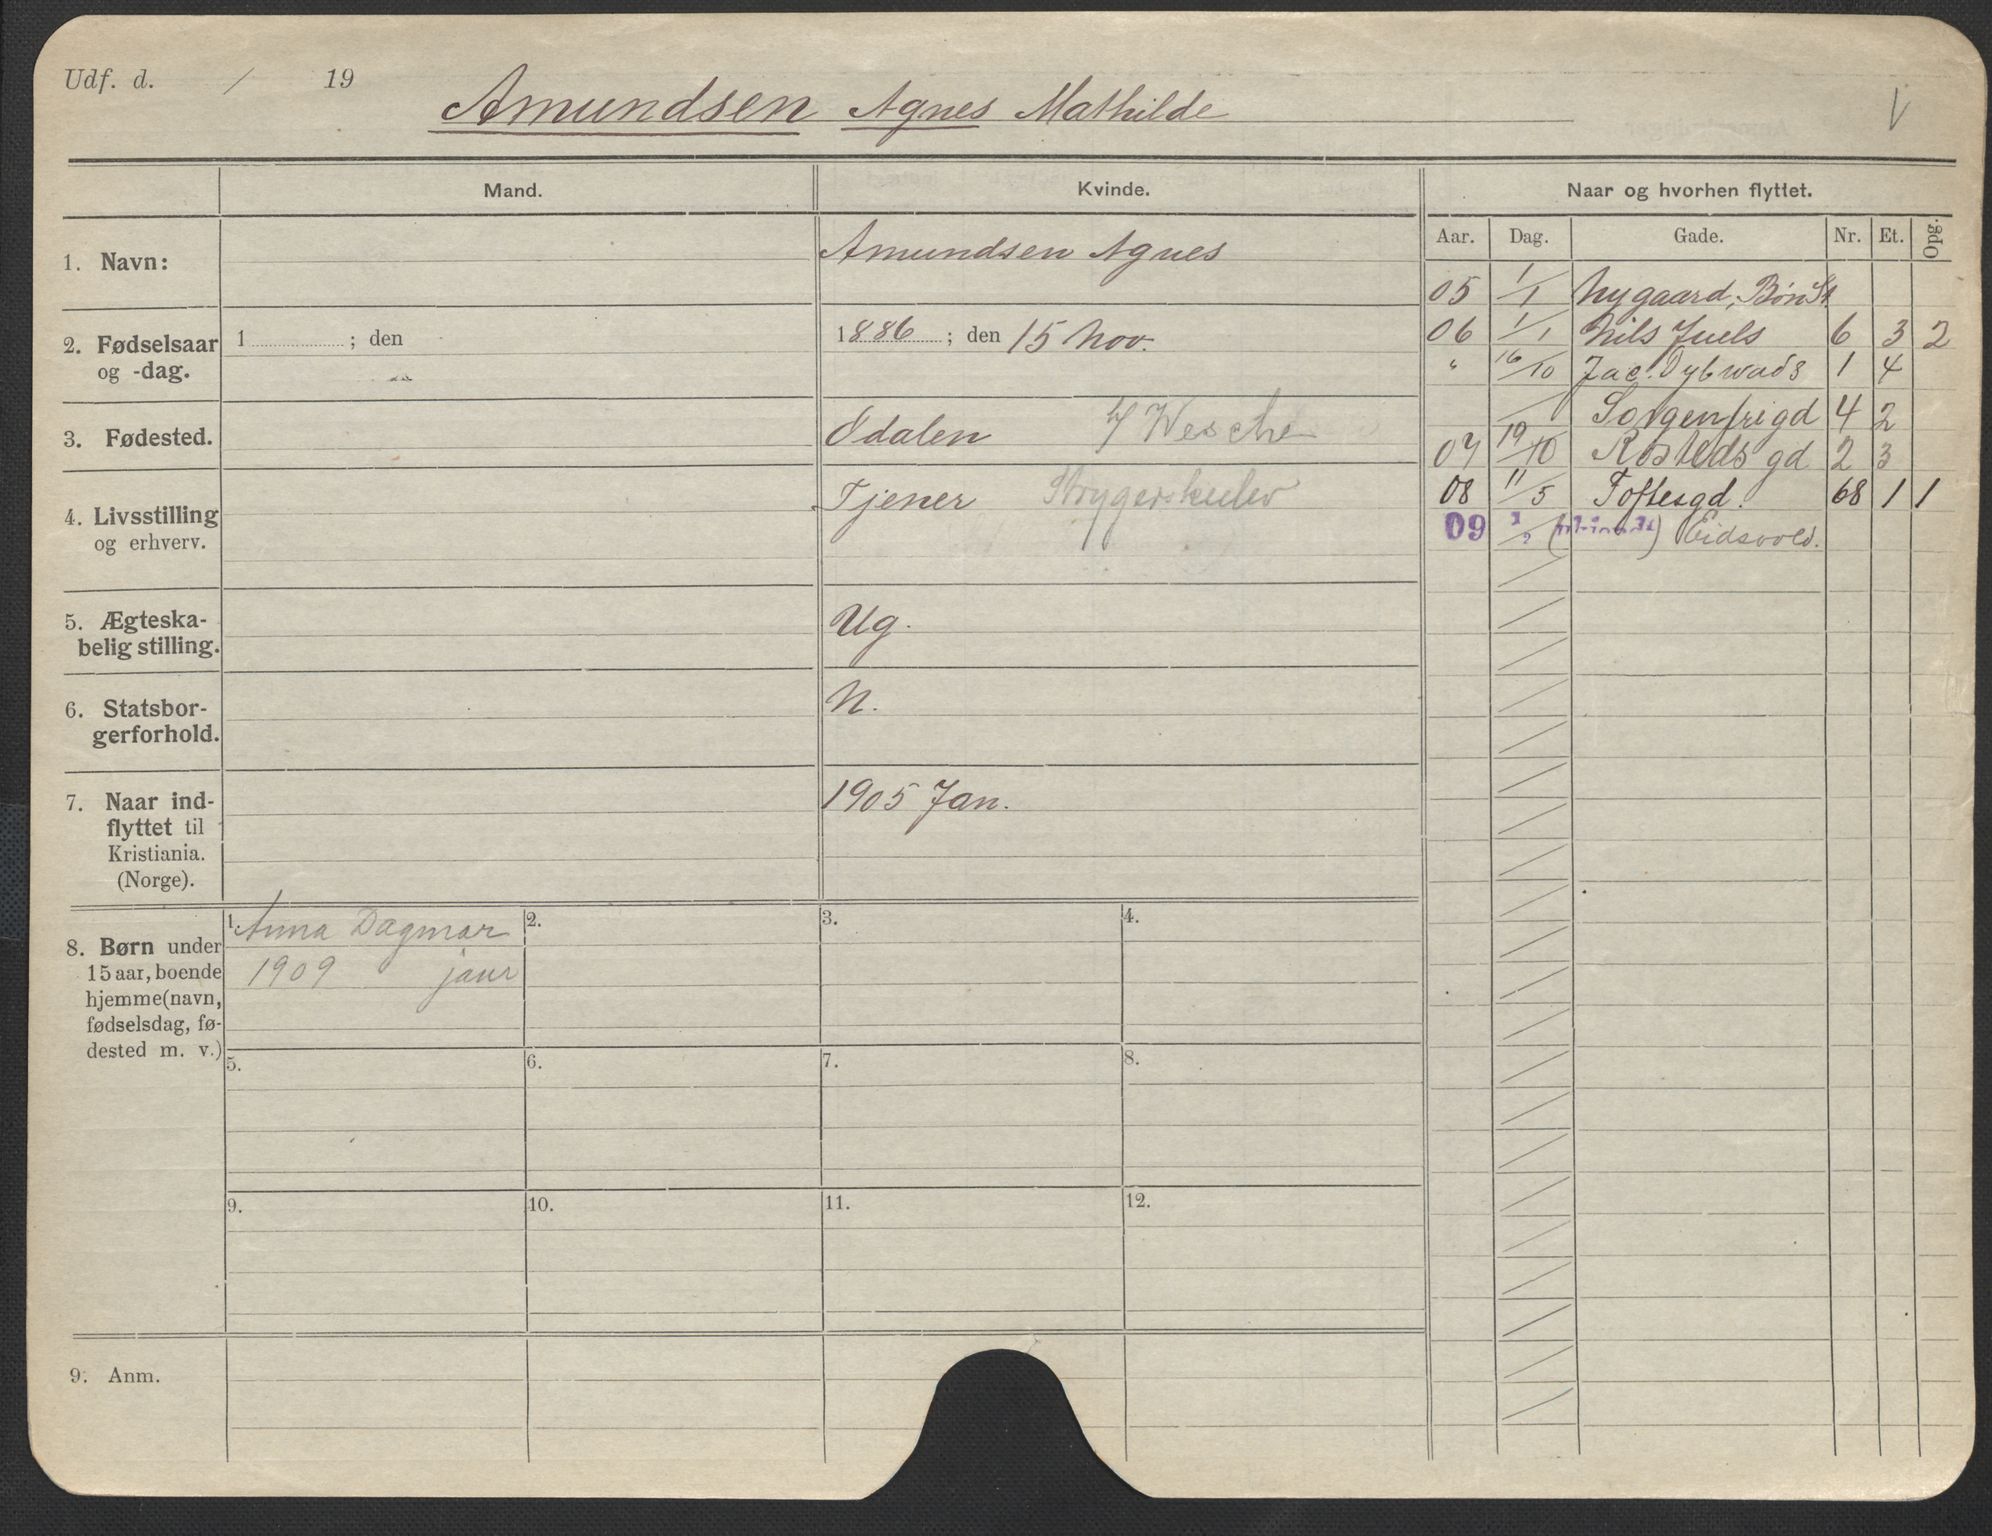 Udf. d. / 19
Amundsen Agnes Mathilde
V
Mand.
Kvinde.
Naar og hvorhen flyttet.
Aar. Dag. Gade. Nr. Et. Opg.
1. Navn:
Amundsen Agnes
2. Fødselsaar
og -dag.
1 ; den
1886 ; den 15 Nov.
3. Fødested.
Odalen
Wesche
4. Livsstilling
og erhverv.
Tjener
5. Ægteska-
belig stilling.
Ug.
6. Statsbor-
gerforhold.
N.
7. Naar ind-
flyttet til
Kristiania.
(Norge).
1905 Jan.
05 1/1 Nygaard, Bøn St.
06 1/1 Nils Juels 6 3 2
" 16/10 Jac. Dybwads 1 4
/ Sorgenfrigd 4 2
07 19/10 Rosteds gd 2 3
08 11/5 Toftesgd. 68 1 1
09 (ukjendt) Eidsvold.
8. Børn under
15 aar, boende
hjemme (navn,
fødselsdag, fø-
dested m. v.)
1. Anna Dagmar
1909
2.
3.
4.
5.
6.
7.
8.
9.
10.
11.
12.
9. Anm.